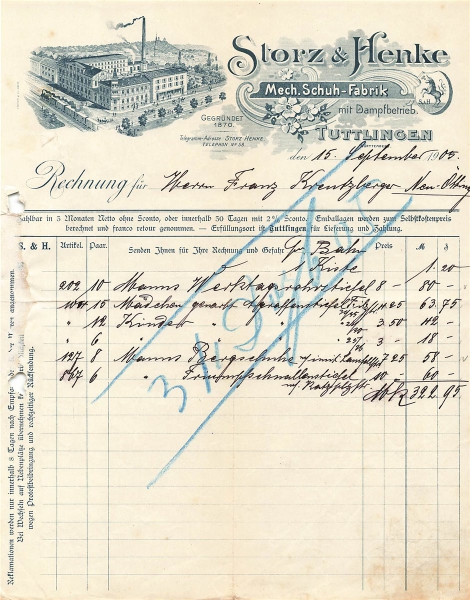 Storz & Henke
Mech. Schuh-Fabrik
mit Dampfbetrieb.
S&H
GEGRÜNDET
1870.
Telegramm-Adresse STORZ HENKE
TELEPHON No 58.
TUTTLINGEN
den 15. September 1905.
Rechnung für Herrn Franz Kreutzberger
Zahlbar in 3 Monaten Netto ohne Sconto, oder innerhalb 30 Tagen mit 2% Sconto. Emballagen werden zum Selbstkostenpreis
berechnet und franco retour genommen. — Erfüllungsort ist Tuttlingen für Lieferung und Zahlung.
S. & H. Artikel. Paar. Senden Ihnen für Ihre Rechnung und Gefahr per Bahn Preis M ₰
1 Kiste 1. 20
202 10 Manns Werktagrohrstiefel 8 — 80 —
15 Mädchen 4.25 63.75
" 12 Kinder " " 3.50 42 —
" 6 " " " 3 — 18 —
127 8 Manns Bergschuhe 7.25 58 —
6 10 — 60 —
Mk 322.95
Reklamationen werden nur innerhalb 8 Tagen nach Empfang angenommen.
Bei Wechseln auf Nebenplätze übernehmen
wegen Protestbeibringung und rechtzeitiger Rückgabe.